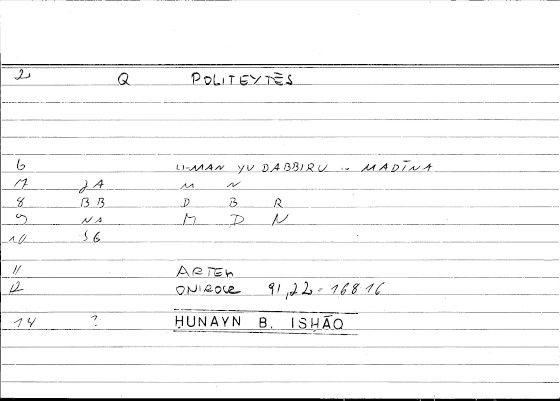 2 Q POLITEYTĒS
6 LI-MAN YUDABBIRU .. MADĪNA
7 JA M N
8 BB D B R
9 NA M D N
10 SG
11 ARTEM
12 ONIROCR 91,22 = 168 16
14 ? ḤUNAYN B. ISḤĀQ